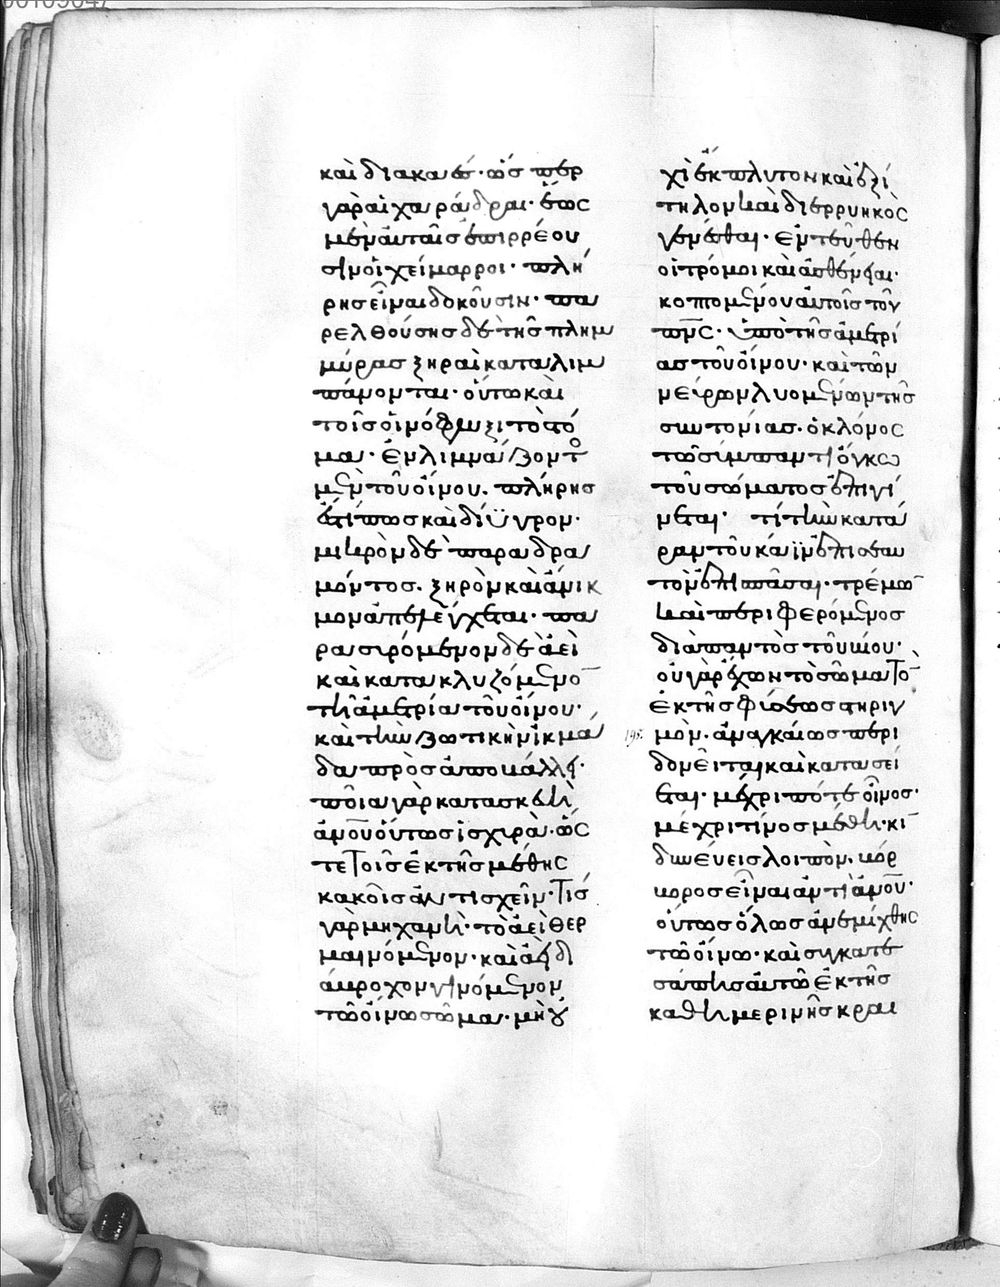 καὶ διακαές· ὥσπερ
γὰρ αἱ χαράδραι· ἕως
μὲν αὐταῖς ἐπιρρέου
σιν οἱ χείμαρροι· πλή
ρης εἶναι δοκοῦσιν· πα
ρελθούσης δὲ τῆς πλημ
μύρας ξηραὶ καταλιμ
πάνονται· οὕτω καὶ
τοῖς οἰνόφλυξι τὸ στό
μα· ἐνλιμνάζοντος
μὲν τοῦ οἴνου· πλήρης
ἐστί πως καὶ δίϋγρον·
μικρὸν δὲ παραδρα
μόντος· ξηρὸν καὶ ἄνικ
μον ἀπελέγχεται· πα
ρασιρόμενον δὲ ἀεὶ
καὶ κατακλυζόμενον
τῆ ἀμετρία τοῦ οἴνου·
καὶ τὴν ζωτικὴν ἰκμά
δα προσαποβάλλει·
ποία γὰρ κατασκευὴ
ἀνου οὕτως ἰσχυρὰ· ὥς
τε τοῖς ἐκ τῆς μέθης
κακοῖς ἀντισχεῖν· τίς
γὰρ μηχανὴ· τὸ ἀεὶ θερ
μαινόμενον· καὶ ἀεὶ δι
άβροχον γινόμενον
τῶ οἴνω σῶμα· μὴ οὐ
χὶ ἔκπλυτον καὶ ἐξί
τηλον καὶ διερρυηκὸς
γενέσθαι· ἐντεῦθεν
οἱ τρόμοι καὶ ἀσθένειαι·
κοπτομένου αὐτοῖς τοῦ
πνς· ὑπὸ τῆς ἀμετρί
ας τοῦ οἴνου· καὶ τῶν
νεύρων λυομένων τῆς
συντονίας· ὁ κλόνος
τῶ σύμπαντι ὄγκω
τοῦ σώματος ἐπιγί
νεται· τί τὴν κατά
ραν τοῦ κάϊν ἐπισπᾶ
τὸν ἐπισπᾶσαι· τρέμων
καὶ περιφερόμενος
διαπαντὸς τοῦ βίου·
οὐ γὰρ ἔχων τὸ σῶμα τὸν
ἐκ τῆς φύσεως στηριγ
μὸν· ἀναγκαίως περι
δονεῖται καὶ κατασεί
εται· μέχρι πότε οἶνος·
μέχρι τίνος μέθη· κιν
δυνεύεις λοιπὸν· βόρ
βορος εἶναι ἀντὶ ἀνου·
οὕτως ὅλως ἀνεμίχθης
τῶ οἴνω· καὶ συγκατε
σάπης αὐτῶ ἐκ τῆς
καθημερινῆς κραι